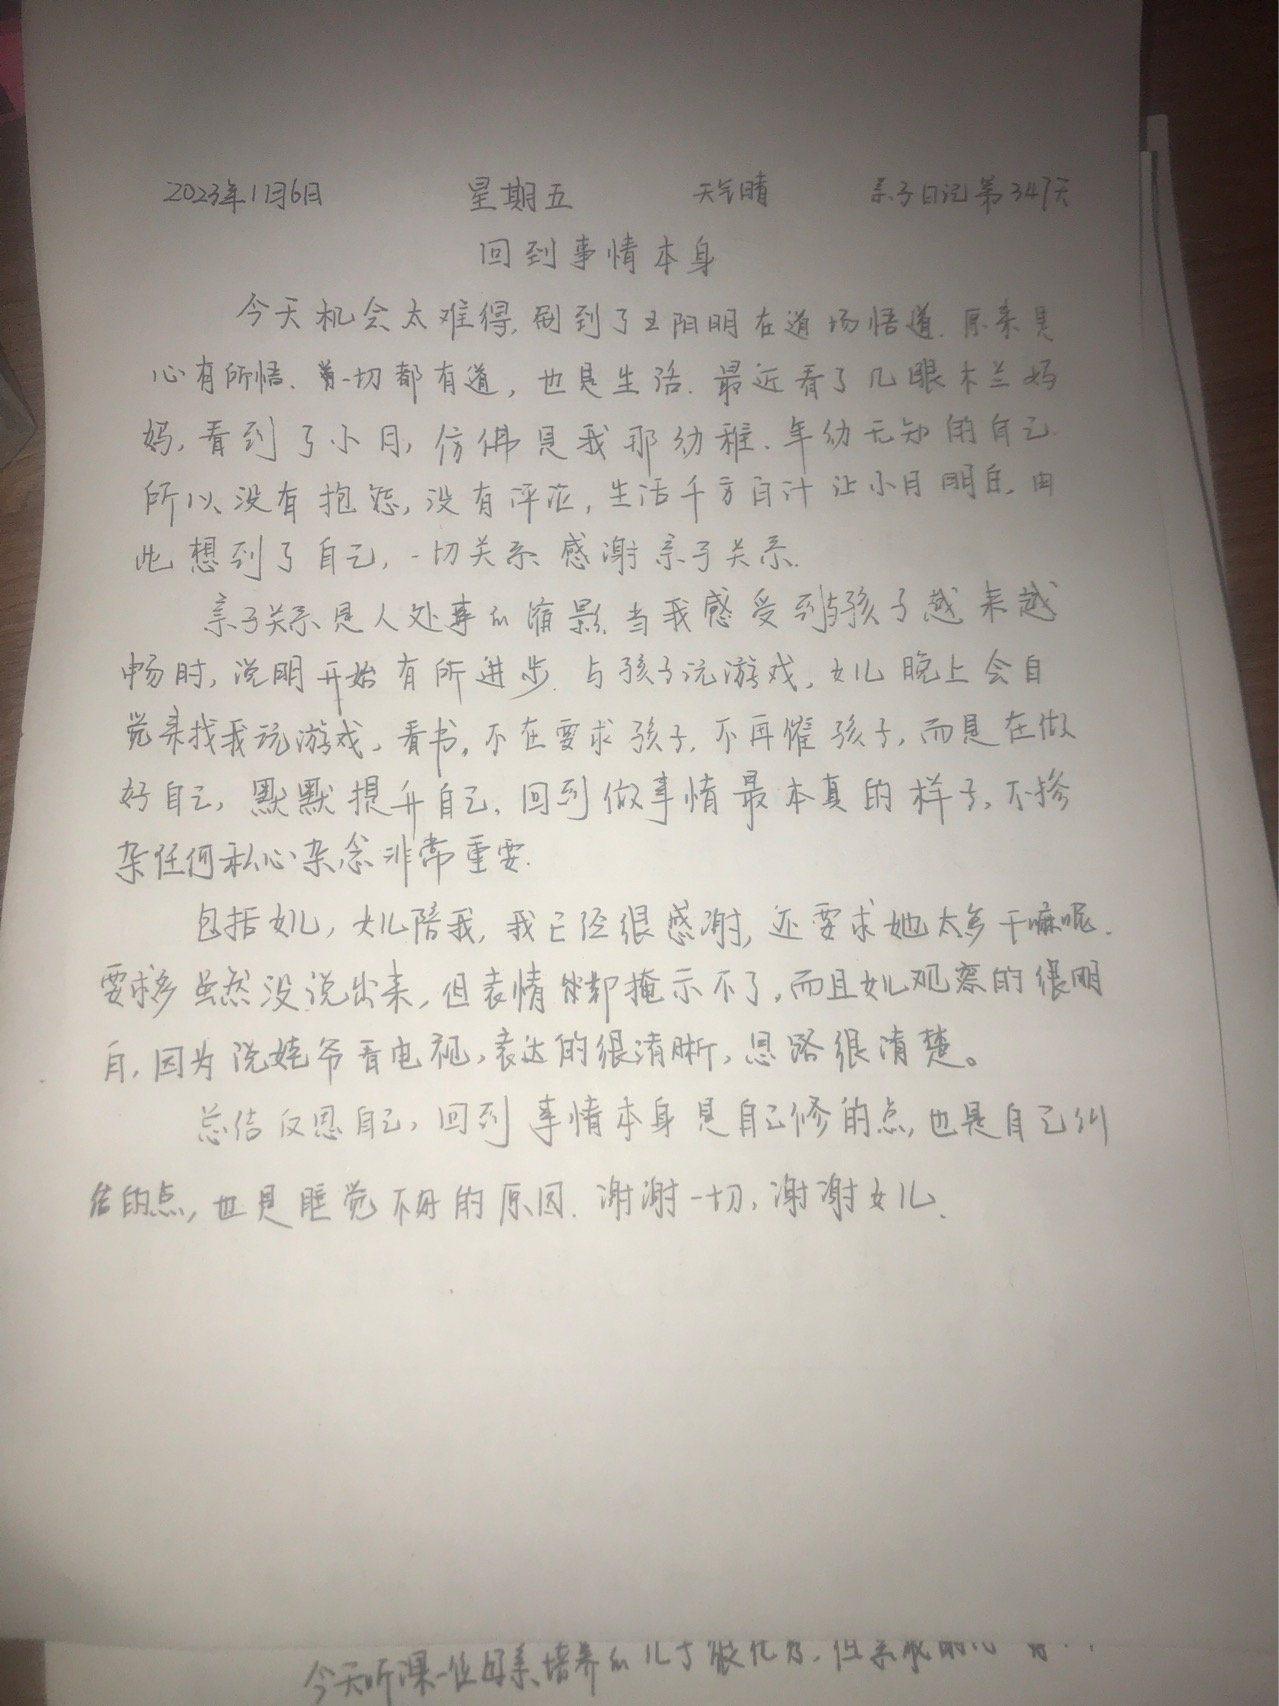 2023年1月6日 星期五 天气晴 亲子日记第347天
回到事情本身
今天机会太难得,刷到了王阳明在道场悟道.原来是
心有所悟.一切都有道,也是生活.最近看了几眼木兰妈
妈,看到了小月,仿佛是我那幼稚.年幼无知的自己.
所以没有抱怨,没有评论,生活千方百计让小月明白,由
此想到了自己,一切关系感谢亲子关系.
亲子关系是人处事的缩影.当我感受到与孩子越来越
畅时,说明开始有所进步.与孩子玩游戏,女儿晚上会自
觉来找我玩游戏、看书,不在要求孩子,不再催孩子,而是在做
好自己,默默提升自己,回到做事情最本真的样子,不掺
杂任何私心杂念非常重要.
包括女儿,女儿陪我,我已经很感谢,还要求她太多干嘛呢.
要求多虽然没说出来,但表情却掩示不了,而且女儿观察的很明
白,因为说姥爷看电视,表达的很清晰,思路很清楚。
总结反思自己,回到事情本身是自己修的点,也是自己纠
结的点,也是睡觉不好的原因.谢谢一切,谢谢女儿.
今天听课一位母亲培养的儿子很优秀,但亲